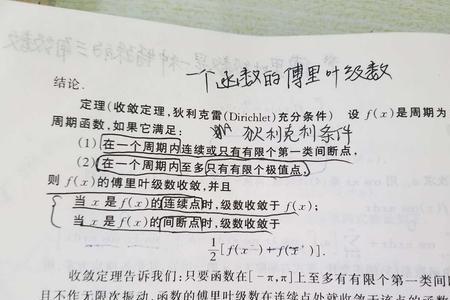 一个函数的傅里叶级数
结论.
定理(收敛定理,狄利克雷(Dirichlet)充分条件) 设 f(x)是周期为
周期函数,如果它满足: 狄利克利条件
(1) 在一个周期内连续或只有有限个第一类间断点,
(2) 在一个周期内至多只有有限个极值点,
则 f(x)的傅里叶级数收敛,并且
当 x 是 f(x)的连续点时,级数收敛于 f(x);
当 x 是 f(x)的间断点时,级数收敛于
1/2[f(x⁻)+f(x⁺)].
收敛定理告诉我们:只要函数在[-π,π]上至多有有限个第一类间
且不作无限次振动,函数的傅里叶级数在连续点处就收敛于该点的函